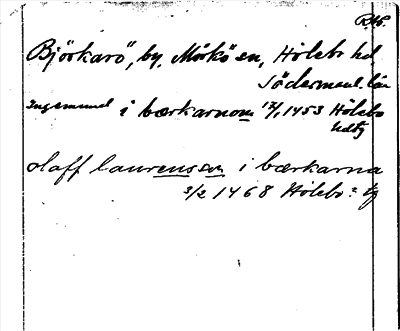 Björkarö, by, Mörkö en, Hölebo hd
Södermanl. län
Ingemund i bærkarnom 12/1 1453 Hölebo
hdtg
olaff laurensson i bærkarna
3/2 1468 Hölebo: tg